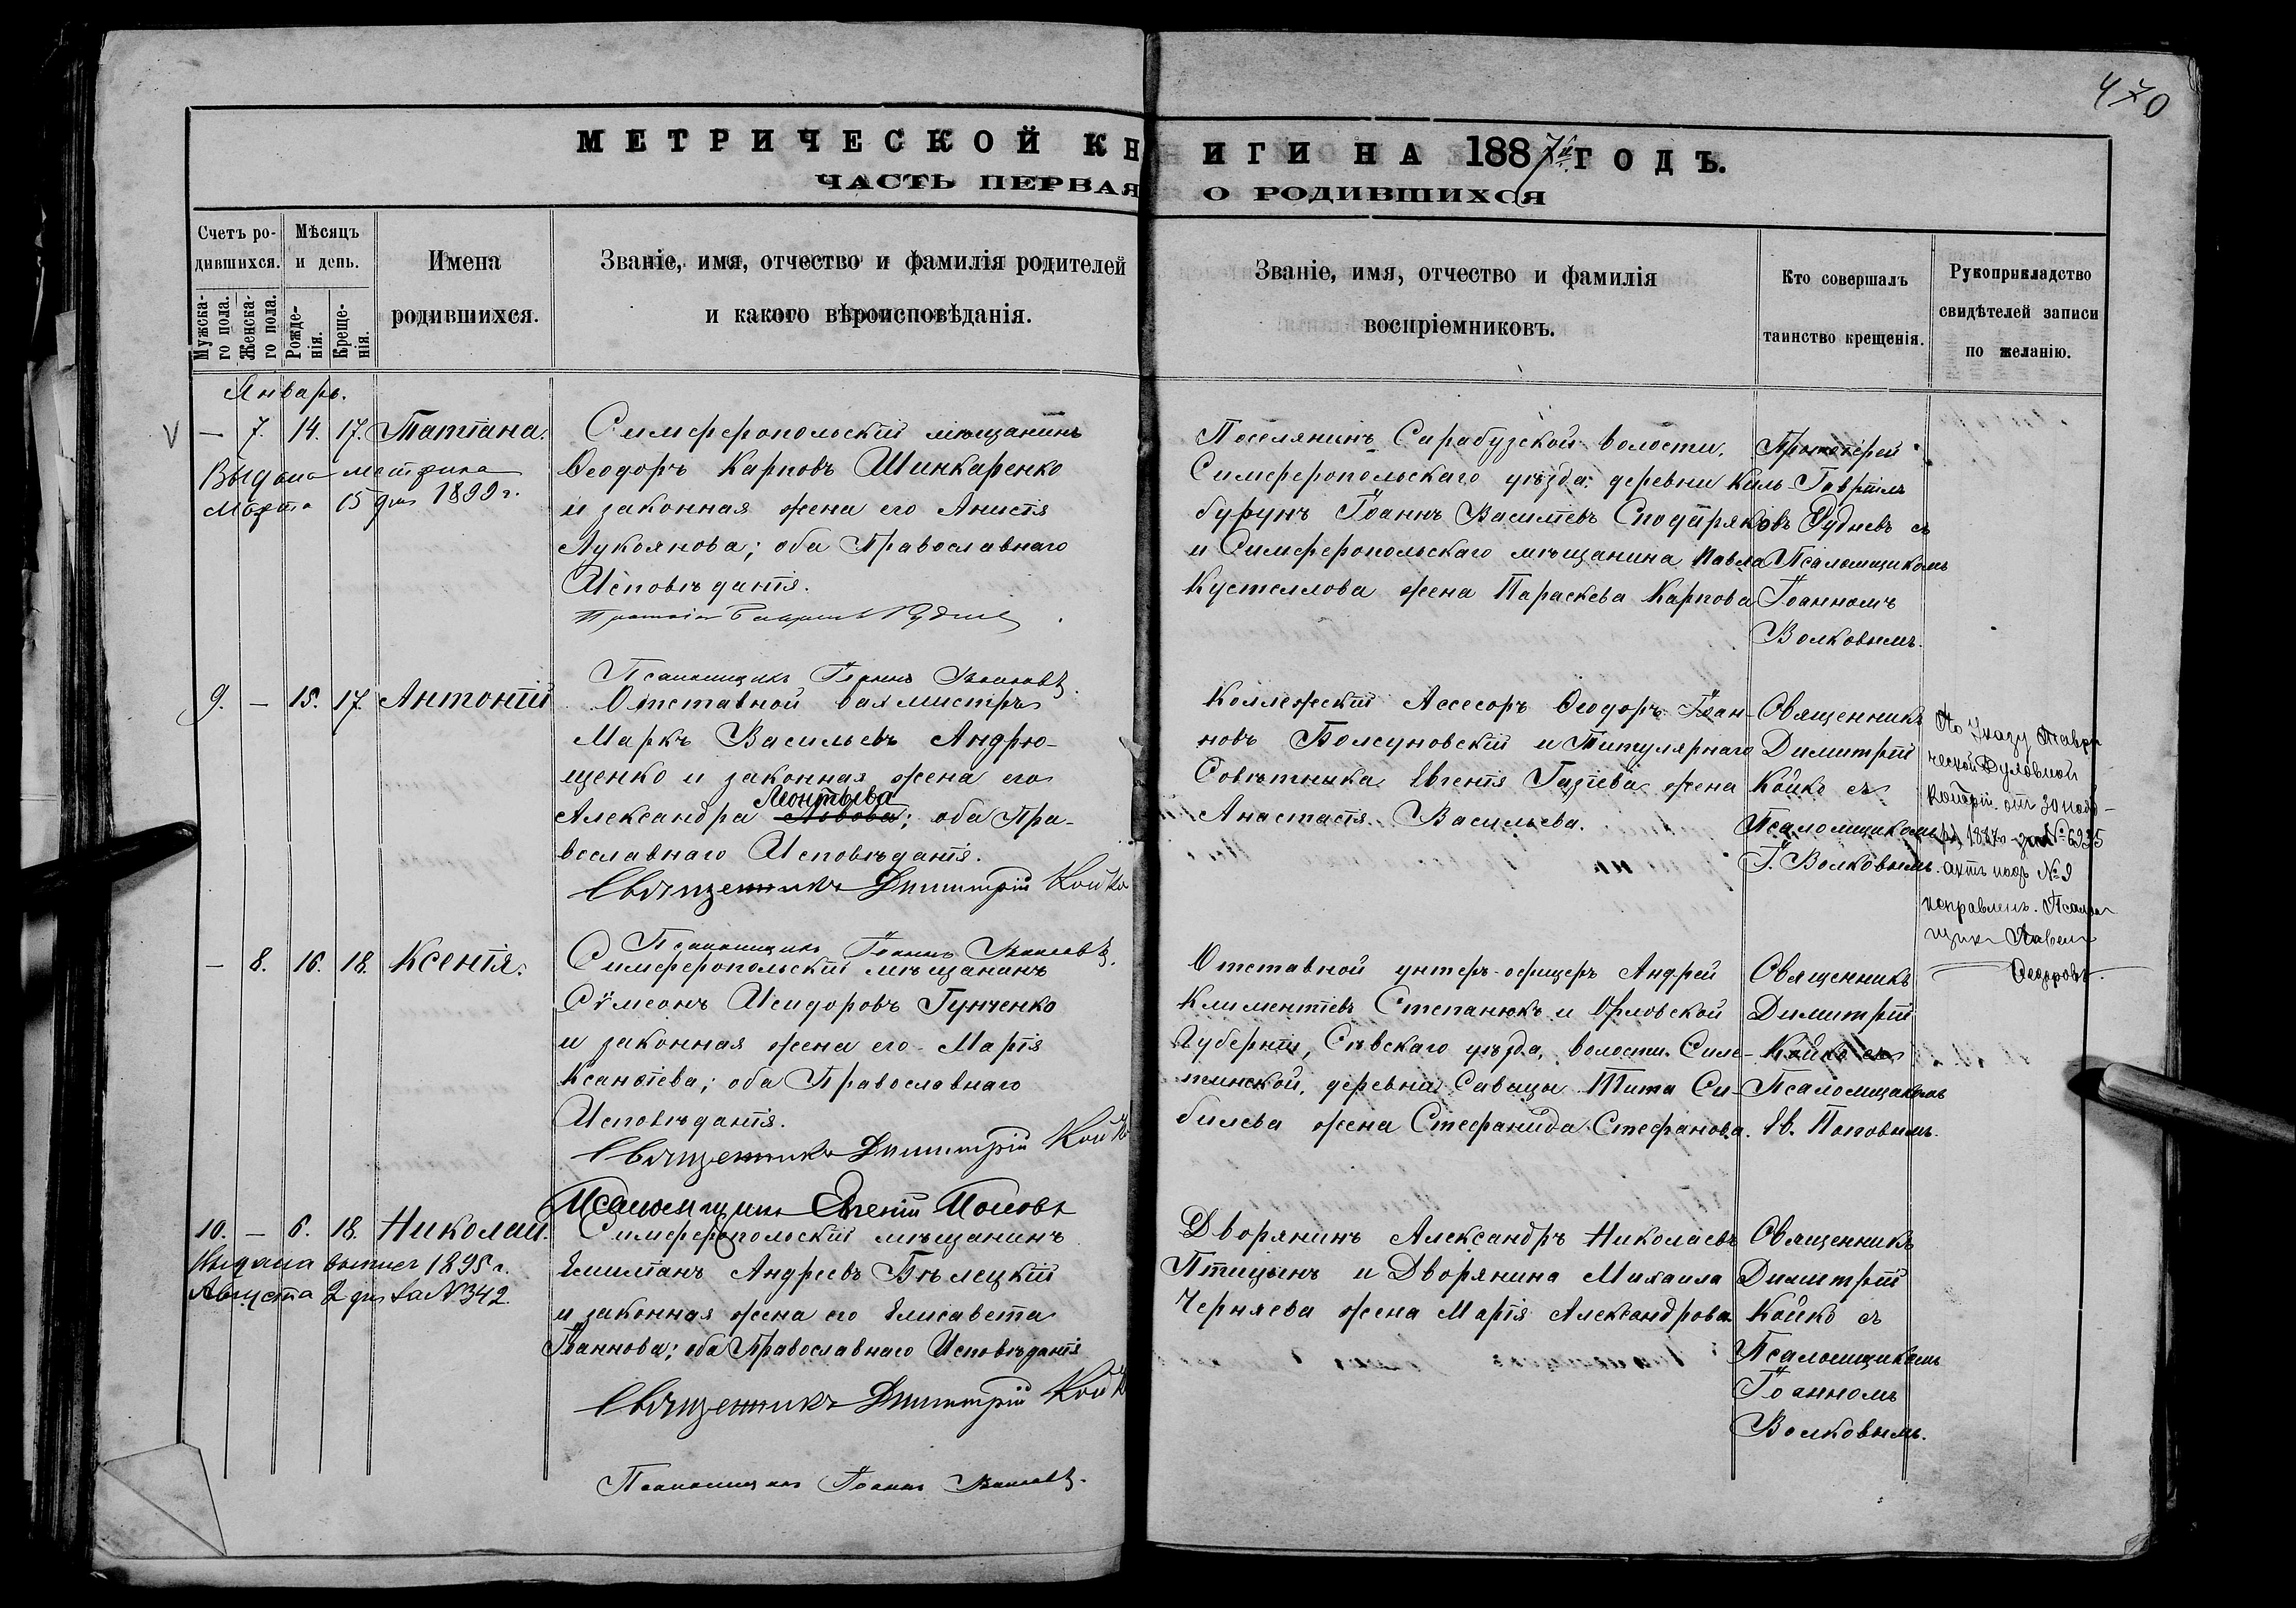 470
МЕТРИЧЕСКОЙ КНИГИ НА 1887й ГОДЪ.
ЧАСТЬ ПЕРВАЯ О РОДИВШИХСЯ
Счетъ ро-
дившихся.
Мужска-
го пола.
Женска-
го пола.
Мѣсяцъ
и день.
Рожде-
нія.
Креще-
нія.
Имена
родившихся.
Званіе, имя, отчество и фамилія родителей
и какого вѣроисповѣданія.
Званіе, имя, отчество и фамилія
воспріемниковъ.
Кто совершалъ
таинство крещенія.
Рукоприкладство
свидѣтелей записи
по желанію.
Январь.
— 7. 14. 17. Татіана.
Выдана метрика
Марта 15 дня 1899 г.
Симферопольскій мѣщанинъ
Ѳеодоръ Карповъ Шинкаренко
и законная жена его Анисія
Лукоянова; оба Православнаго
Исповѣданія.
Псаломщикъ Іоаннъ Волковъ.
Поселянинъ Сарабузской волости,
Симферопольскаго уѣзда, деревни Киль-
бурунъ Іоаннъ Василіевъ Сподаряковъ
и Симферопольскаго мѣщанина Павла
Кустеллова жена Параскева Карпова
Протоіерей
Гавріилъ
Рудневъ съ
Псаломщикомъ
Іоанномъ
Волковымъ.
9. — 15. 17. Антоній
Отставной вахмистръ
Маркъ Васильевъ Андрю-
щенко и законная жена его
Леонтьева
Александра Львова; оба Пра-
вославнаго Исповѣданія.
Священникъ Димитрій Койко
Псаломщикъ Іоаннъ Волковъ.
Коллежскій Ассесоръ Ѳеодоръ Іоан-
новъ Болсуновскій и Титулярнаго
Совѣтника Евгенія Газіева жена
Анастасія Васильева.
Священникъ
Димитрій
Койко съ
Псаломщикомъ
І. Волковымъ.
По Указу Таври
ческой Духовной
Консрій. отъ 30 нояб-
ря 1887 за № 6935
актъ подъ № 9
исправленъ. Псалом
щикъ Павелъ
Ѳедоровъ.
— 8. 16. 18. Ксенія.
Симферопольскій мѣщанинъ
Сѵмеонъ Исидоровъ Гунченко
и законная жена его Марія
Ксанѳіева; оба Православнаго
Исповѣданія.
Священникъ Димитрій Койко
Псаломщикъ Евгеній Поповъ
Отставной унтеръ-офицеръ Андрей
Климентіевъ Степанюкъ и Орловской
Губерніи, Сѣвскаго уѣзда, волости Силе-
тинской, деревни Савицы Тита Си-
билева жена Стефанида Стефанова.
Священникъ
Димитрій
Койко съ
Псаломщикомъ
Ев. Поповымъ.
10. — 6. 18. Николай.
Выдана выпись 1895 г.
Августа 2 дня за № 342.
Симферопольскій мѣщанинъ
Емиліанъ Андреевъ Бѣлецкій
и законная жена его Елисавета
Іоаннова; оба Православнаго Исповѣданія
Священникъ Димитрій Койко
Псаломщикъ Іоаннъ Волковъ.
Дворянинъ Александръ Николаевъ
Птицынъ и Дворянина Михаила
Черняева жена Марія Александрова.
Священникъ
Димитрій
Койко съ
Псаломщикомъ
Іоанномъ
Волковымъ.